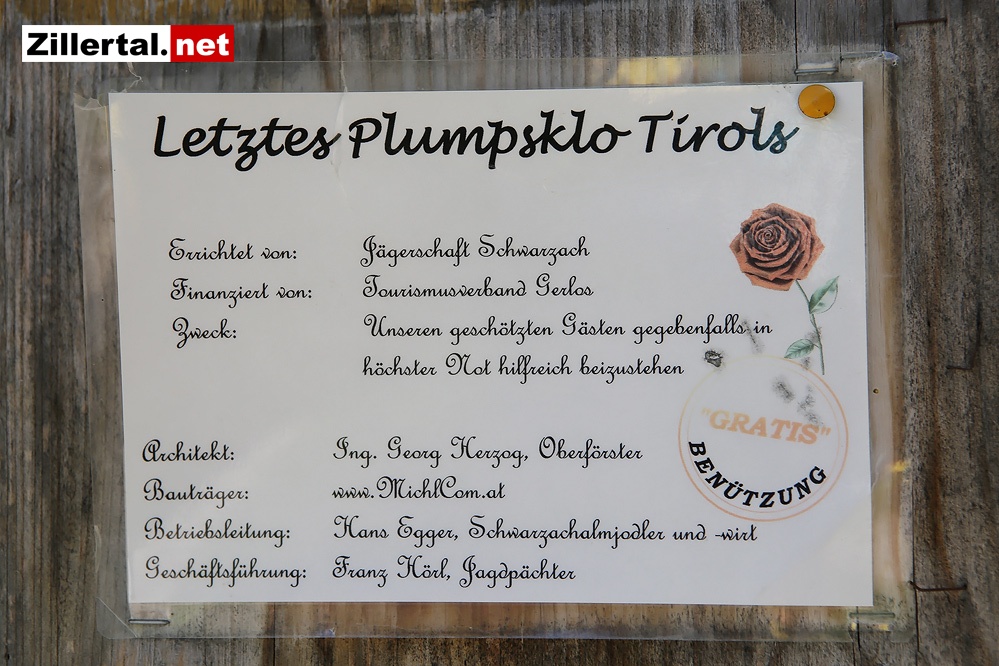 Zillertal.net
Letztes Plumpsklo Tirols
Errichtet von: Jägerschaft Schwarzach
Finanziert von: Tourismusverband Gerlos
Zweck: Unseren geschötzten Gästen gegebenfalls in
höchster Not hilfreich beizustehen
"GRATIS"
BENÜTZUNG
Architekt: Ing. Georg Herzog, Oberförster
Bauträger: www.MichlCom.at
Betriebsleitung: Hans Egger, Schwarzachalmjodler und -wirt
Geschäftsführung: Franz Hörl, Jagdpächter